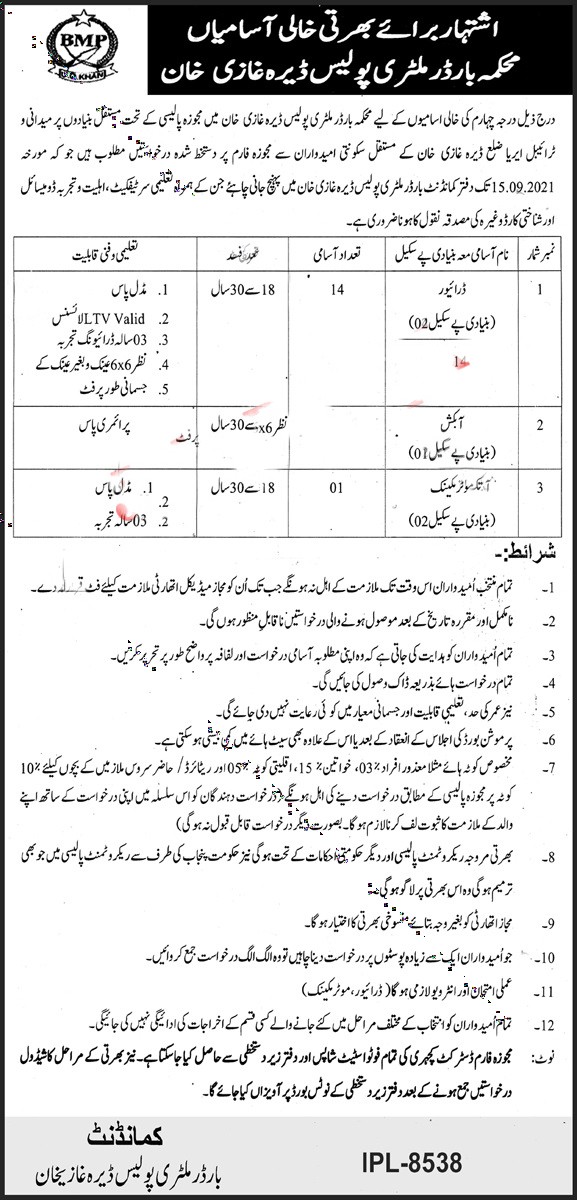 BMP
D.G.KHAN
اشتہار برائے بھرتی خالی آسامیاں
محکمہ بارڈر ملٹری پولیس ڈیرہ غازی خان
درج ذیل درجہ چہارم کی خالی اسامیوں کے لیے محکمہ بارڈر ملٹری پولیس ڈیرہ غازی خان میں مجوزہ پالیسی کے تحت مستقل بنیادوں پر میدانی و
ٹرائیبل ایریا ضلع ڈیرہ غازی خان کے مستقل سکونتی امیدواران سے مجوزہ فارم پر دستخط شدہ درخواستیں مطلوب ہیں جو کہ مورخہ
15.09.2021 تک دفتر کمانڈنٹ بارڈر ملٹری پولیس ڈیرہ غازی خان میں پہنچ جانی چاہئے جن کے ہمراہ تعلیمی سرٹیفکیٹ، اہلیت و تجربہ ڈومیسائل
اور شناختی کارڈ وغیرہ کی مصدقہ نقول کا ہونا ضروری ہے۔
نمبر شمار نام آسامی معہ بنیادی پے سکیل تعداد آسامی تعلیمی و فنی قابلیت
1 ڈرائیور 14 18 سے 30 سال 1. مڈل پاس
(بنیادی پے سکیل 02) 2. LTV Valid لائسنس
3. 03 سالہ ڈرائیونگ تجربہ
14 4. نظر 6x6 عینک و بغیر عینک کے
5. جسمانی طور پر فٹ
2 آبکش نظر 6x سے 30 سال پرفٹ پرائمری پاس
(بنیادی پے سکیل 01)
3 موٹر مکینک 01 18 سے 30 سال 1. مڈل پاس
(بنیادی پے سکیل 02) 2.
2. 03 سالہ تجربہ
شرائط:-
1۔ تمام منتخب اُمیدواران اس وقت تک ملازمت کے اہل نہ ہونگے جب تک اُن کو مجاز میڈیکل اتھارٹی ملازمت کیلئے فٹ قرار نہ دے۔
2۔ نامکمل اور مقررہ تاریخ کے بعد موصول ہونے والی درخواستیں ناقابل منظور ہوں گی۔
3۔ تمام اُمیدواران کو ہدایت کی جاتی ہے کہ وہ اپنی مطلوبہ آسامی درخواست اور لفافہ پر واضح طور پر تحریر کریں۔
4۔ تمام درخواست ہائے بذریعہ ڈاک وصول کی جائیں گی۔
5۔ نیز عمر کی حد، تعلیمی قابلیت اور جسمانی معیار میں کوئی رعایت نہیں دی جائے گی۔
6۔ پرموشن بورڈ کی اجلاس کے انعقاد کے بعد یا اس کے علاوہ بھی سیٹ ہائے میں کمی بیشی ہو سکتی ہے۔
7۔ مخصوص کوٹہ ہائے مثلا معذور افراد 03%، خواتین 15%، اقلیتی کوٹہ 05% اور ریٹائرڈ/ حاضر سروس ملازمین کے بچوں کیلئے 10%
کوٹہ پر مجوزہ پالیسی کے مطابق درخواست دینے کی اہل ہونگے (درخواست دہندگان کو اس سلسلہ میں اپنی درخواست کے ساتھ اپنے
والد کے ملازمت کا ثبوت لف کرنا لازم ہوگا۔ بصورت دیگر درخواست قابل قبول نہ ہوگی)
8۔ بھرتی مروجہ ریکروٹمنٹ پالیسی اور دیگر حکومتی احکامات کے تحت ہوگی نیز حکومت پنجاب کی طرف سے ریکروٹمنٹ پالیسی میں جو بھی
ترمیم ہوگی وہ اس بھرتی پر لاگو ہوگی
9۔ مجاز اتھارٹی کو بغیر وجہ بتائے منسوخی بھرتی کا اختیار ہوگا۔
10۔ جو اُمیدواران ایک سے زیادہ پوسٹوں پر درخواست دینا چاہیں تو وہ الگ الگ درخواست جمع کروائیں۔
11۔ عملی امتحان اور انٹرویو لازمی ہوگا (ڈرائیور، موٹر مکینک)
12۔ تمام اُمیدواران کو انتخاب کے مختلف مراحل میں کئے جانے والے کسی قسم کے اخراجات کی ادائیگی نہیں کی جائیگی۔
نوٹ: مجوزہ فارم ڈسٹرکٹ کچہری کی تمام فوٹو اسٹیٹ شاپس اور دفتر زیر دستخطی سے حاصل کیا جا سکتا ہے۔ نیز بھرتی کے مراحل کا شیڈول
درخواستیں جمع ہونے کے بعد دفتر زیر دستخطی کے نوٹس بورڈ پر آویزاں کیا جائے گا۔
کمانڈنٹ
بارڈر ملٹری پولیس ڈیرہ غازیخان
IPL-8538